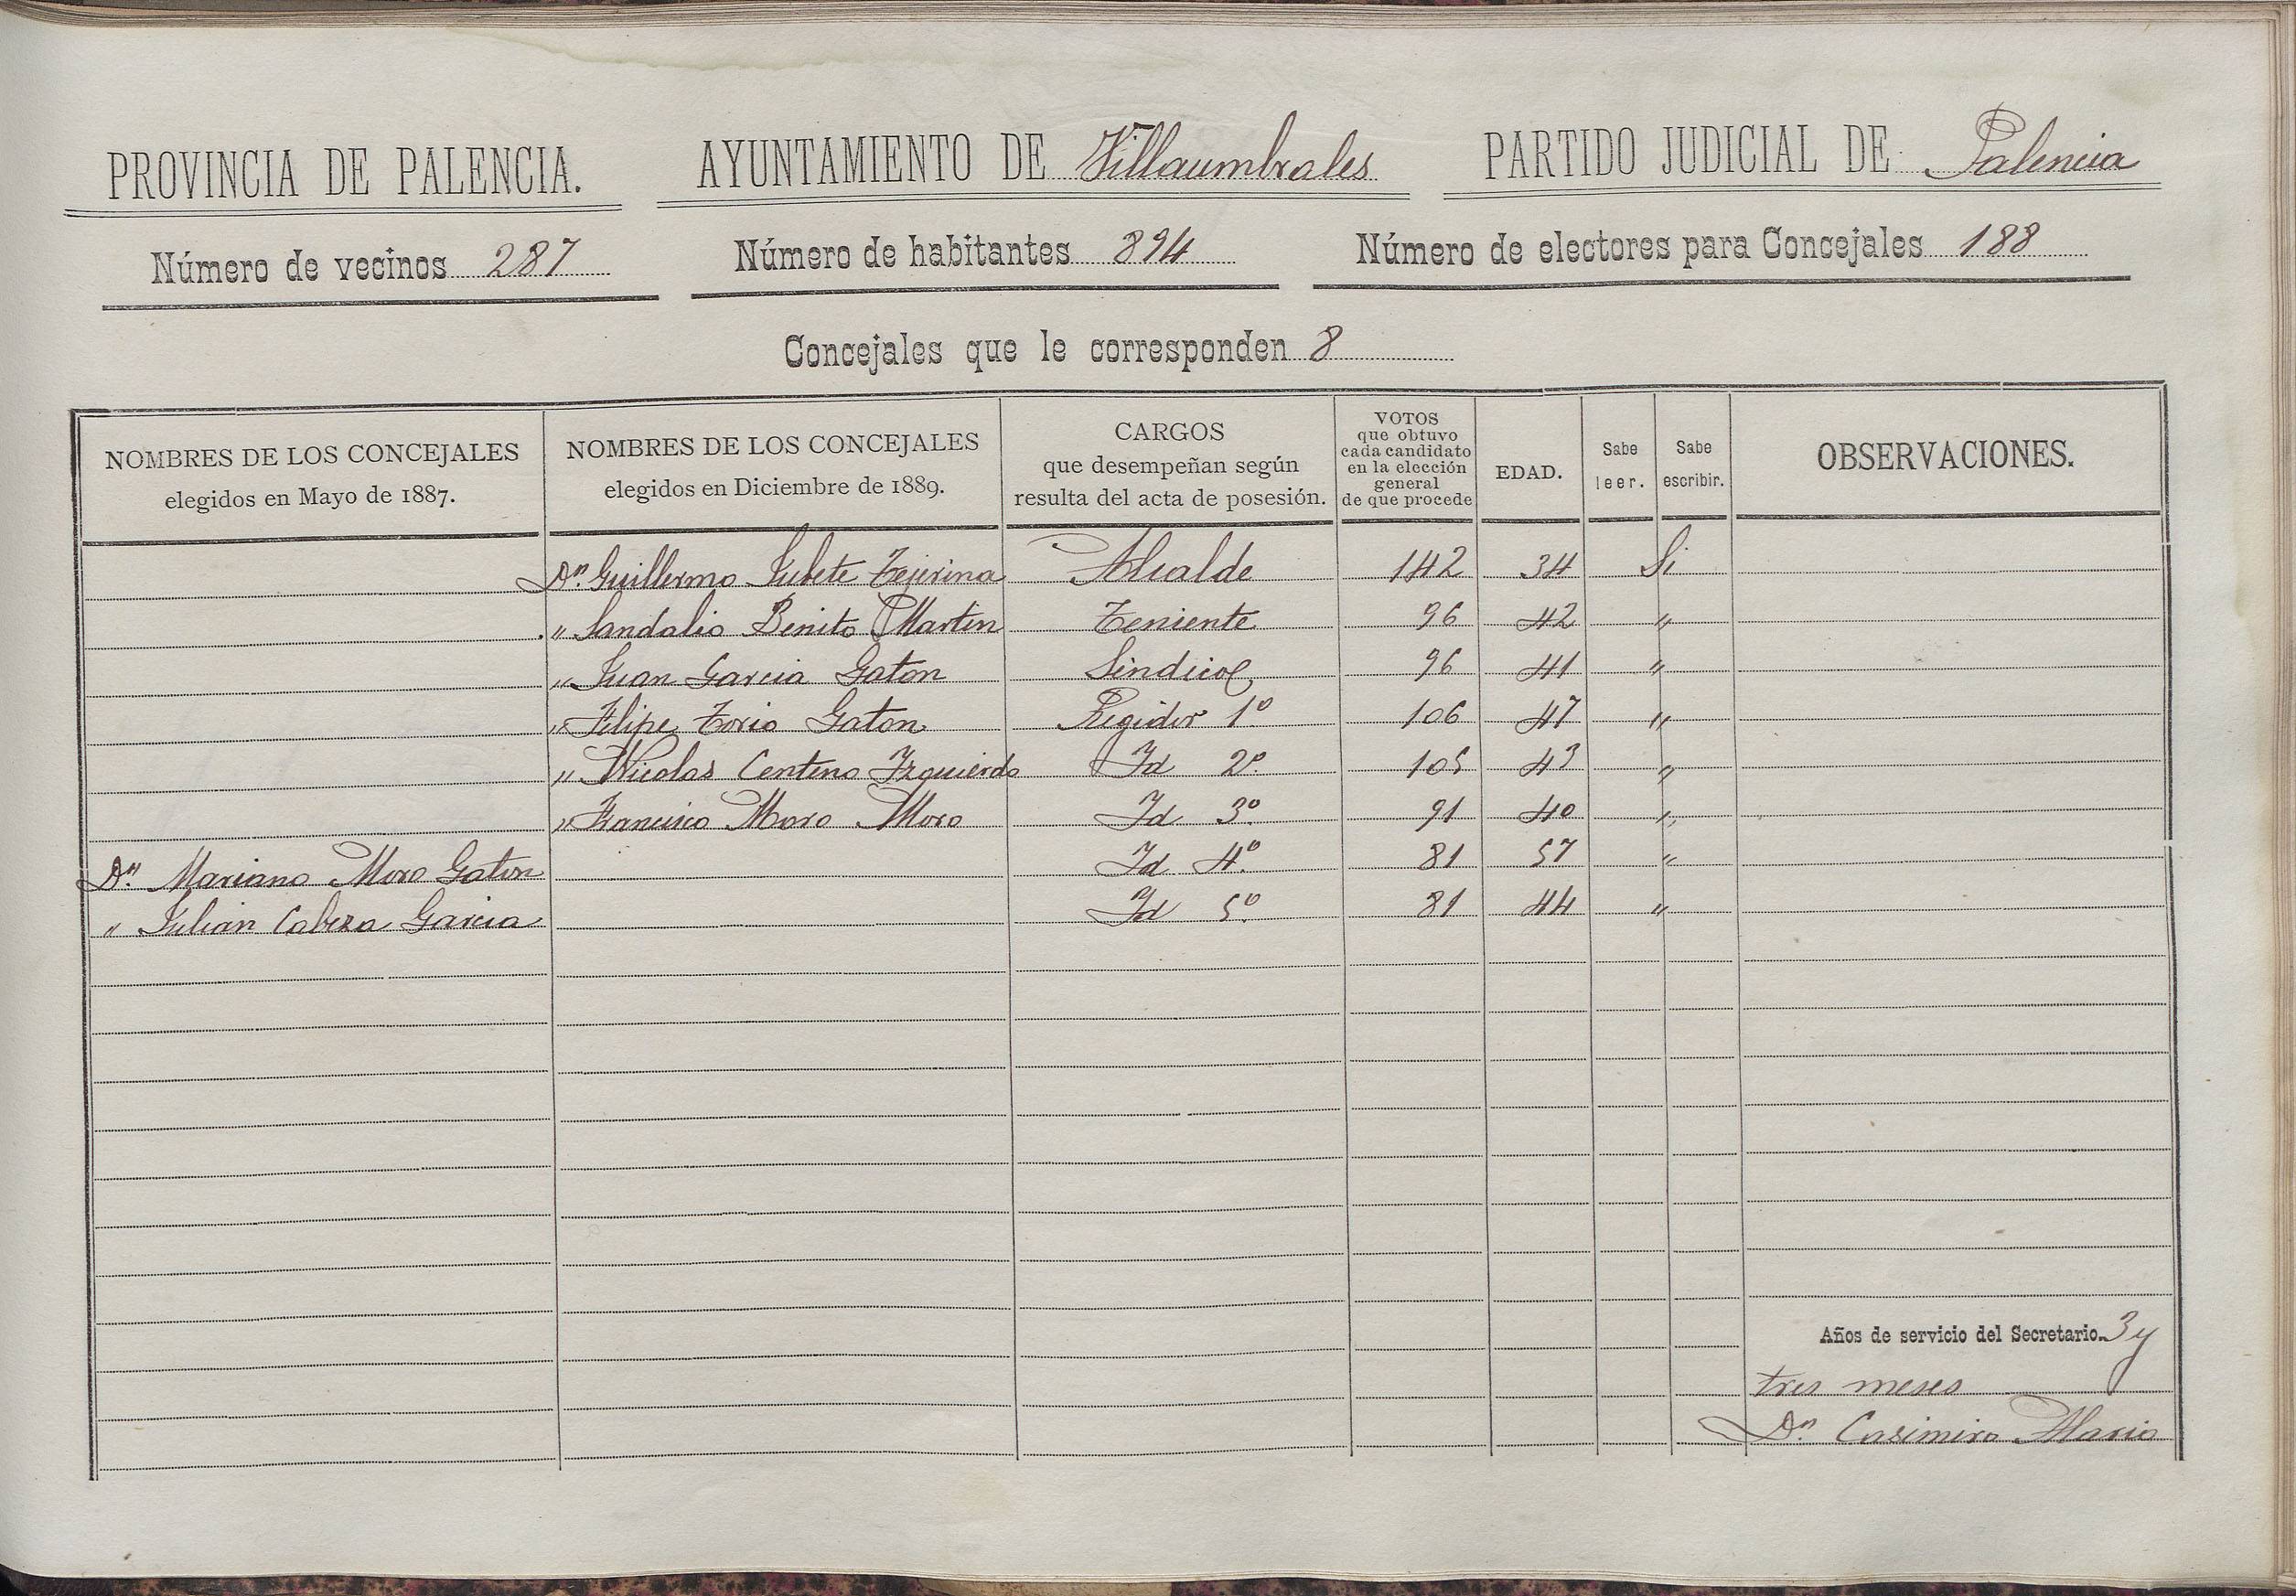 PROVINCIA DE PALENCIA. AYUNTAMIENTO DE Villaumbrales PARTIDO JUDICIAL DE Palencia
Número de vecinos 287 Número de habitantes 894 Número de electores para Concejales 188
Concejales que le corresponden 8
NOMBRES DE LOS CONCEJALES
elegidos en Mayo de 1887.
NOMBRES DE LOS CONCEJALES
elegidos en Diciembre de 1889.
CARGOS
que desempeñan según
resulta del acta de posesión.
VOTOS
que obtuvo
cada candidato
en la elección
general
de que procede
EDAD.
Sabe
leer.
Sabe
escribir.
OBSERVACIONES.
Dn. Guillermo Tejerina Alcalde 142 34 Si
" Sandalio Benito Martin Teniente 96 42 "
" Juan Garcia Gaton Sindico 96 41 "
" Felipe Torio Gaton Regidor 1º 106 47 "
" Nicolas Centeno Izquierdo Id 2º. 105 43 "
" Francisco Moro Moro Id 3º. 91 40 "
Dn. Mariano Moro Gaton Id 4º. 81 57 "
" Julian Cabeza Garcia Id 5º. 81 44 "
Años de servicio del Secretario. 3 y
tres meses
Dn. Casimiro